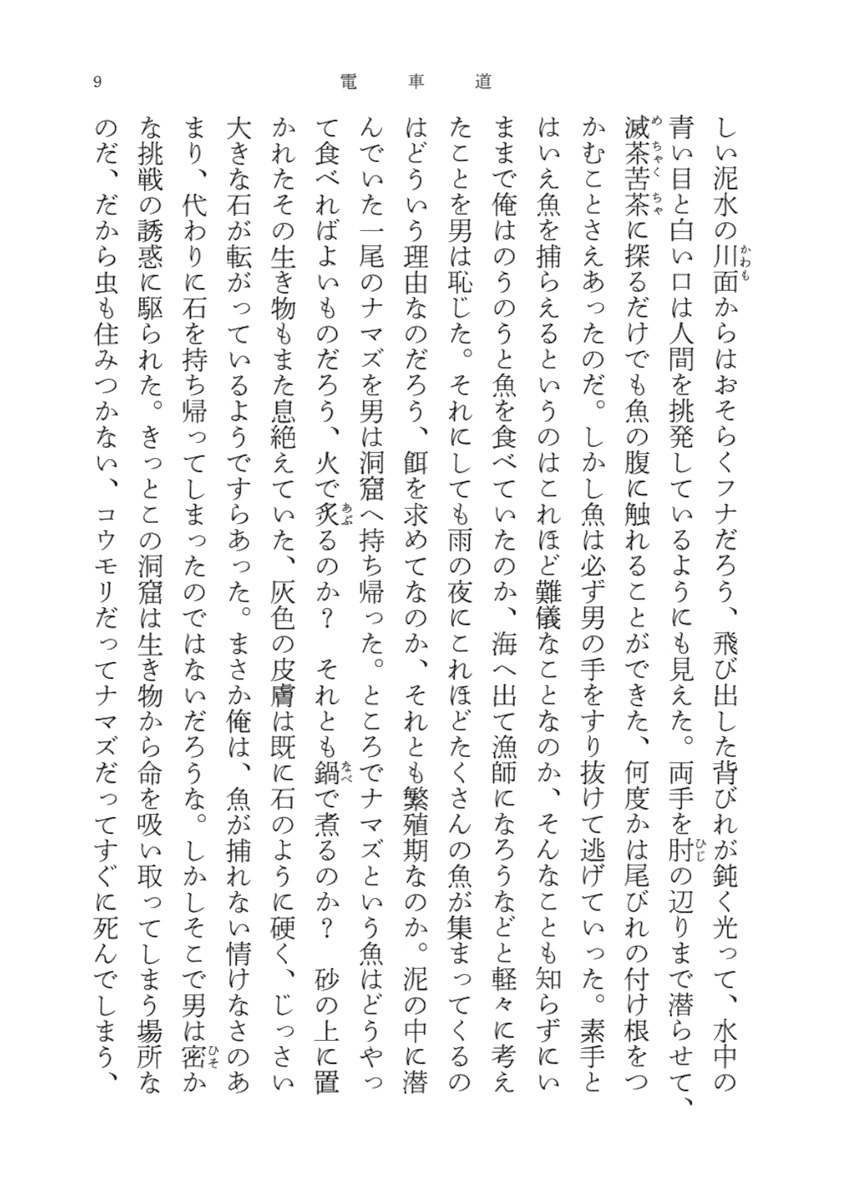 9
電車道
しい泥水の川面からはおそらくフナだろう、飛び出した背びれが鈍く光って、水中の
青い目と白い口は人間を挑発しているようにも見えた。両手を肘の辺りまで潜らせて、
滅茶苦茶に探るだけでも魚の腹に触れることができた、何度かは尾びれの付け根をつ
かむことさえあったのだ。しかし魚は必ず男の手をすり抜けて逃げていった。素手と
はいえ魚を捕らえるというのはこれほど難儀なことなのか、そんなことも知らずにい
ままで俺はのうのうと魚を食べていたのか、海へ出て漁師になろうなどと軽々に考え
たことを男は恥じた。それにしても雨の夜にこれほどたくさんの魚が集まってくるの
はどういう理由なのだろう、餌を求めてなのか、それとも繁殖期なのか。泥の中に潜
んでいた一尾のナマズを男は洞窟へ持ち帰った。ところでナマズという魚はどうやっ
て食べればよいものだろう、火で炙るのか？　それとも鍋で煮るのか？　砂の上に置
かれたその生き物もまた息絶えていた、灰色の皮膚は既に石のように硬く、じっさい
大きな石が転がっているようですらあった。まさか俺は、魚が捕れない情けなさのあ
まり、代わりに石を持ち帰ってしまったのではないだろうな。しかしそこで男は密か
な挑戦の誘惑に駆られた。きっとこの洞窟は生き物から命を吸い取ってしまう場所な
のだ、だから虫も住みつかない、コウモリだってナマズだってすぐに死んでしまう、